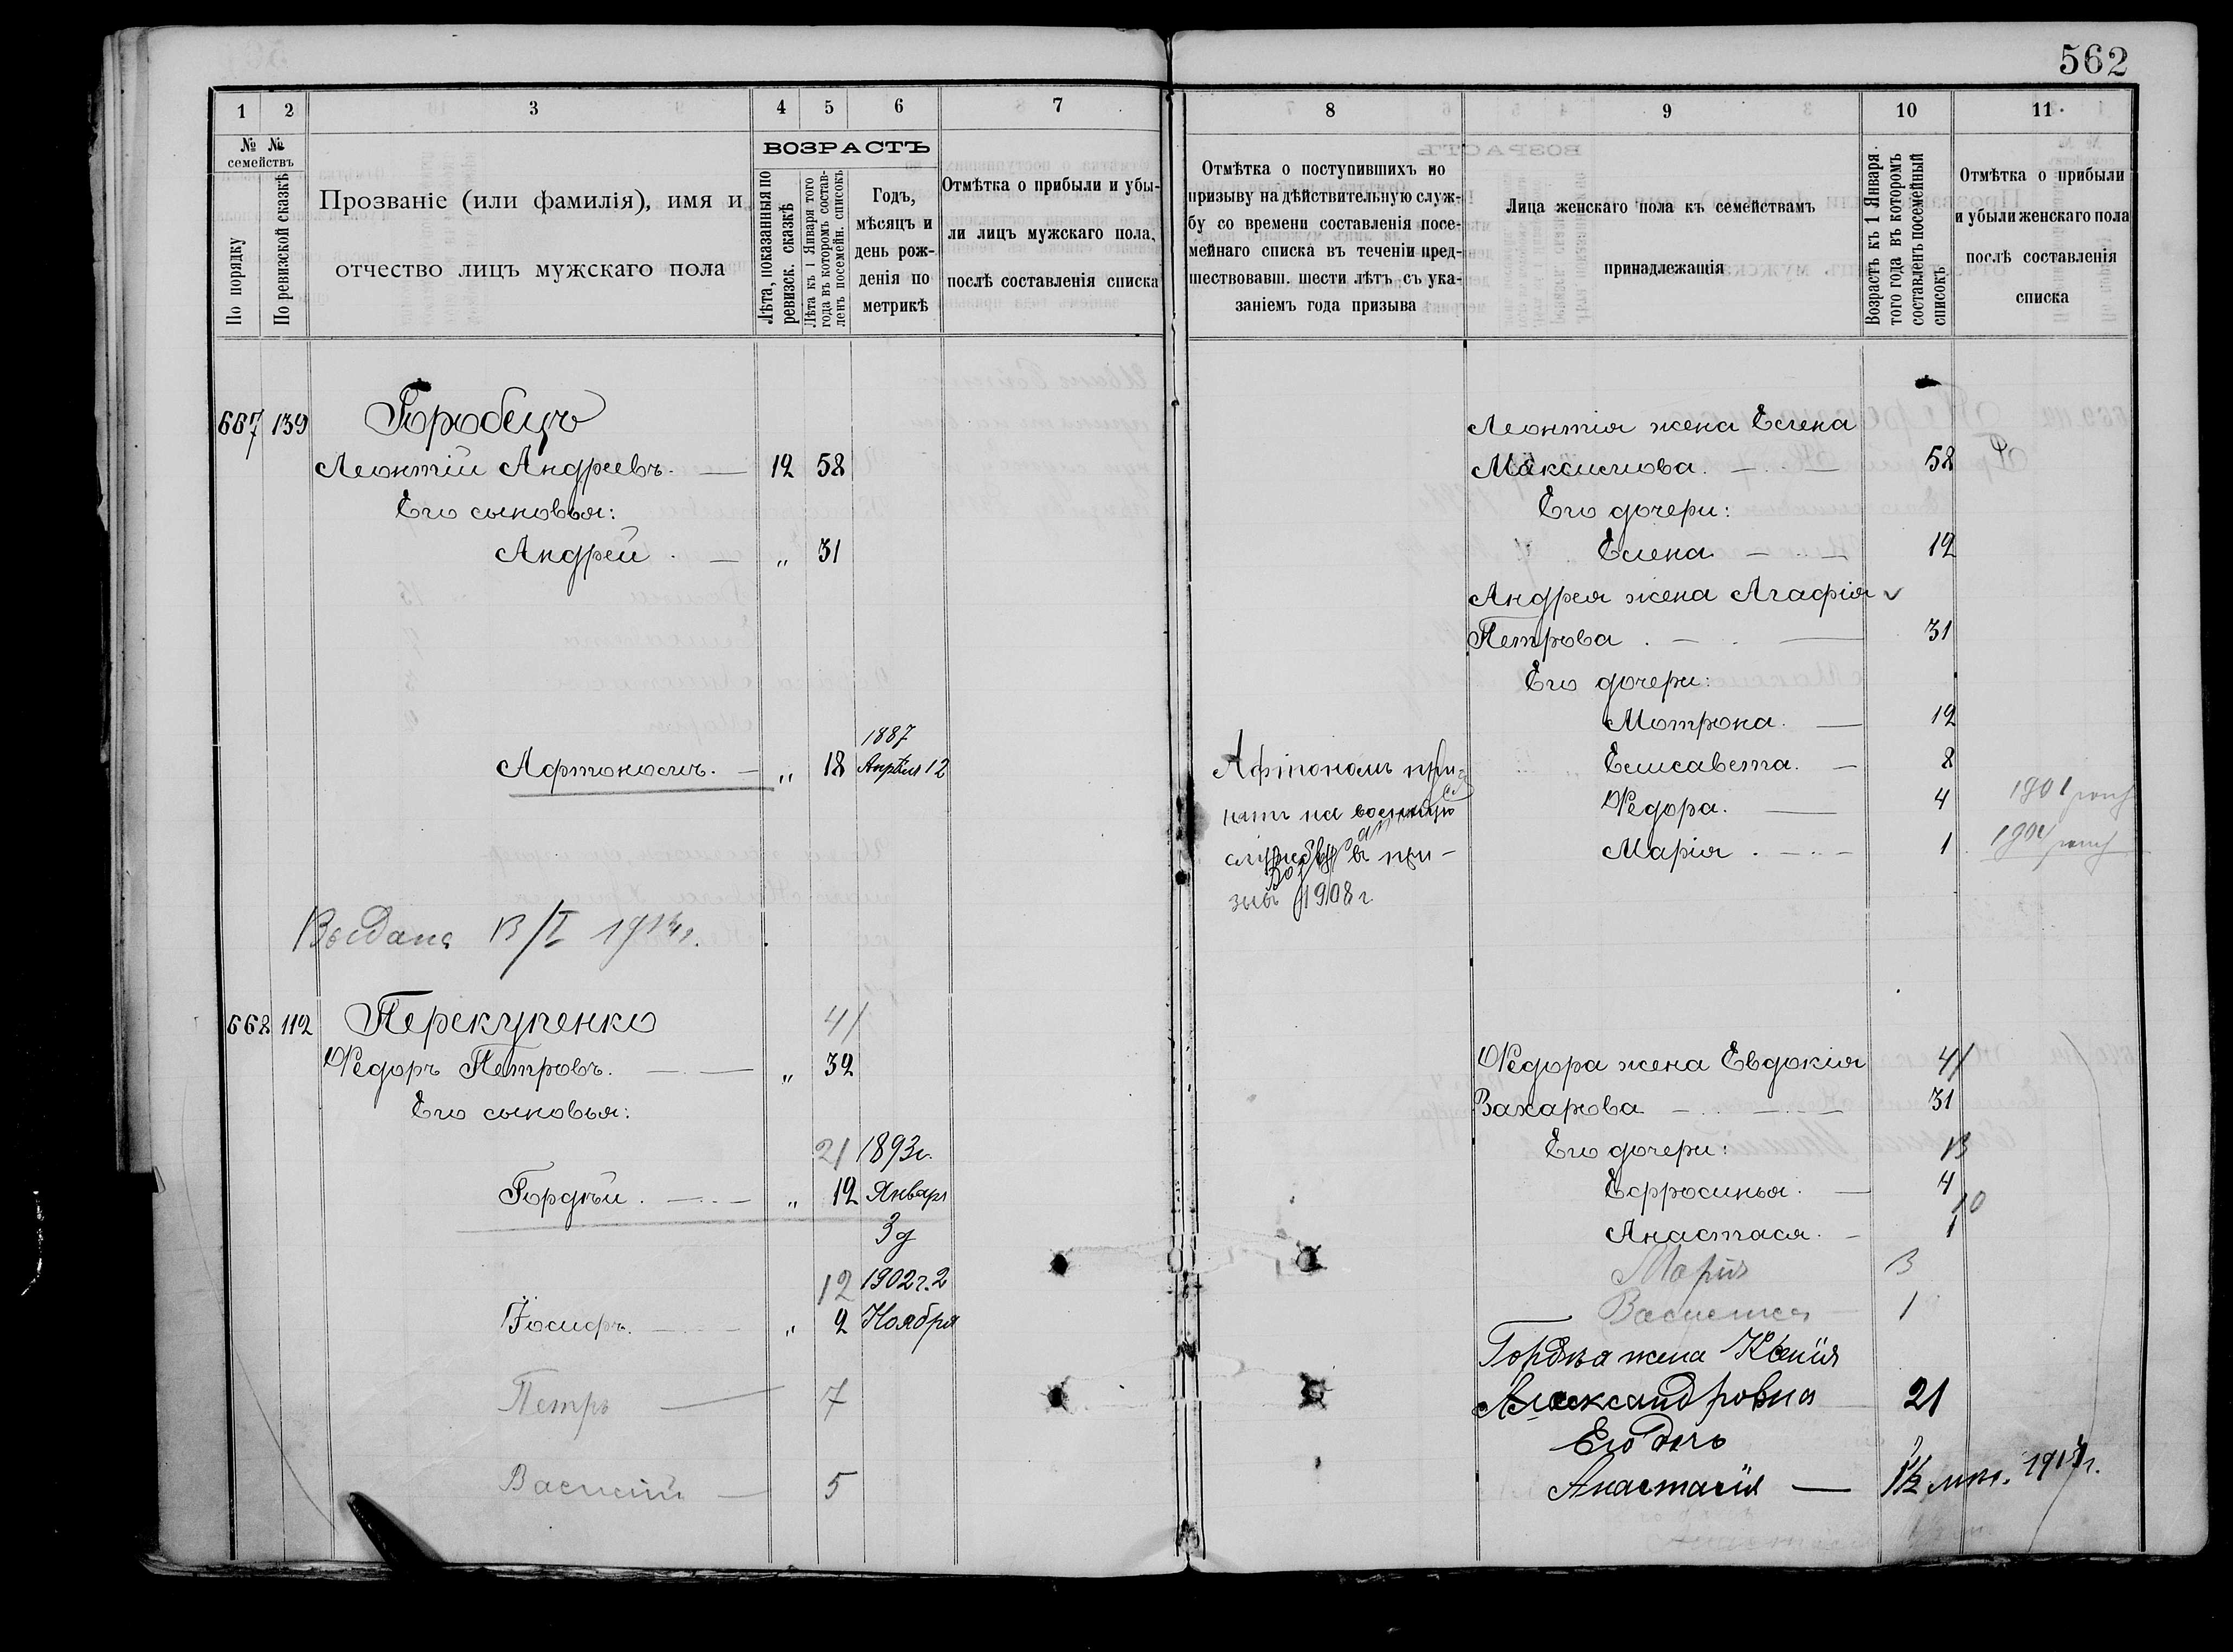 562
1 2 3 4 5 6 7
№ № семействъ
По порядку
По ревизской сказкѣ
Прозваніе (или фамилія), имя и
отчество лицъ мужскаго пола
ВОЗРАСТЪ
Лѣта, показанныя по ревизск. сказкѣ
Лѣта къ 1 Января того года въ которомъ составленъ посемейн. списокъ
Годъ,
мѣсяцъ и
день рож-
денія по
метрикѣ
Отмѣтка о прибыли и убы-
ли лицъ мужскаго пола,
послѣ составленія списка
8 9 10 11
Отмѣтка о поступившихъ по
призыву на дѣйствительную служ-
бу со времени составленія посе-
мейнаго списка въ теченіи пред-
шествовавш. шести лѣтъ, съ ука-
заніемъ года призыва
Лица женскаго пола къ семействамъ
принадлежащія
Возрастъ къ 1 Января того года въ которомъ составленъ посемейный списокъ
Отмѣтка о прибыли
и убыли женскаго пола
послѣ составленія
списка
667 139 Горобецъ
Леонтій Андреевъ. — 12 58
Его сыновья:
Андрей. — „ 31
1887
Афтономъ. — „ 18 Апрѣля 12
Выдана 13/I
668 112 Перекупенко 41
Ѳедоръ Петровъ. — „ 32
Его сыновья:
21 1893г.
Гордѣй. — „ 12 Января
3 д
12 1902г. 2
Іосифъ. — „ 2 Ноября
Петръ — 7
Василій — 5
Леонтія жена Елена
Максимова. — 58
Его дочери:
Елена — 12
Андрея жена Агафія
Петрова. — 31
Его дочери:
Мотрона. — 12
Афтономъ при-
Елисавета. — 8
нятъ на военную
Ѳедора. — 4 1901
службу въ при-
Марія. — 1 1904
зывъ 1908 г.
Ѳедора жена Евдокія 41
Захарова — 31
Его дочери: 13
Ефросинья. — 4
10
Анастася. — 1
Марія 3
Василиса — 1
Гордѣя жена Ксенія
Александровна 21
Его дочь
Анастасія — 1½